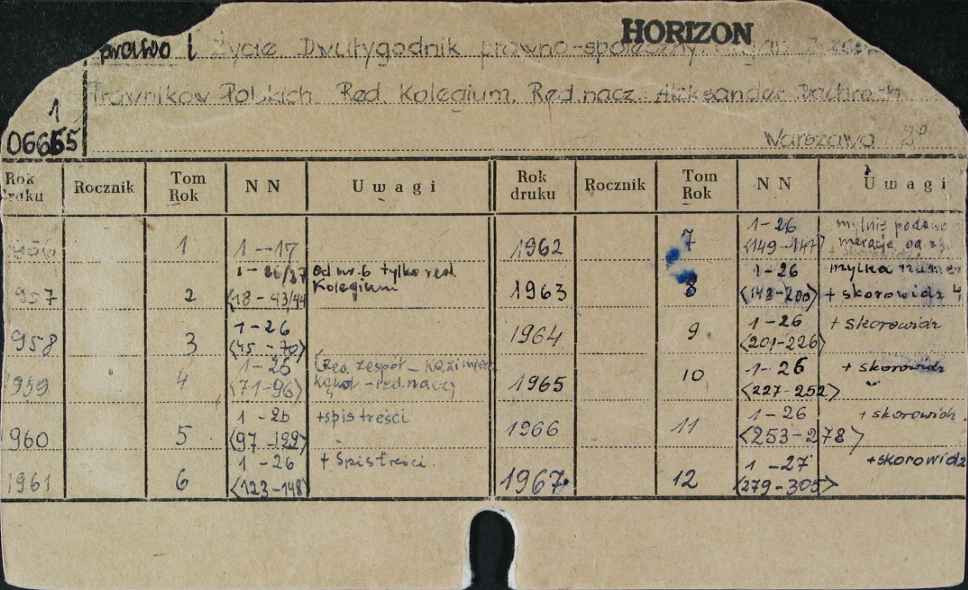 HORIZON
prawo i Życie Dwutygodnik prawno-społeczny
Prawników Polskich Red. Kolegium. Red. nacz. Aleksander
1
06665
Warszawa 2°
Rok druku Rocznik Tom Rok NN Uwagi Rok druku Rocznik Tom Rok NN Uwagi
1956 1 1-17 1962 7 1-26 <149-147> mylnie
957 2 1-26/27 <18-43/44> od nr. 6 tylko red. Kolegium 1963 8 1-26 <143-200> mylna numer + skorowidz
958 3 1-26 <45-70> 1964 9 1-26 <201-226> + skorowidz
1959 4 1-26 <71-96> Red. zespół - Kazimierz Kąkol - red. naczy 1965 10 1-26 <227-252> + skorowidz
960 5 1-26 <97-122> + spis treści 1966 11 1-26 <253-278> + skorowidz
1961 6 1-26 <123-148> + Spis treści. 1967 12 1-27 <279-305> + skorowidz